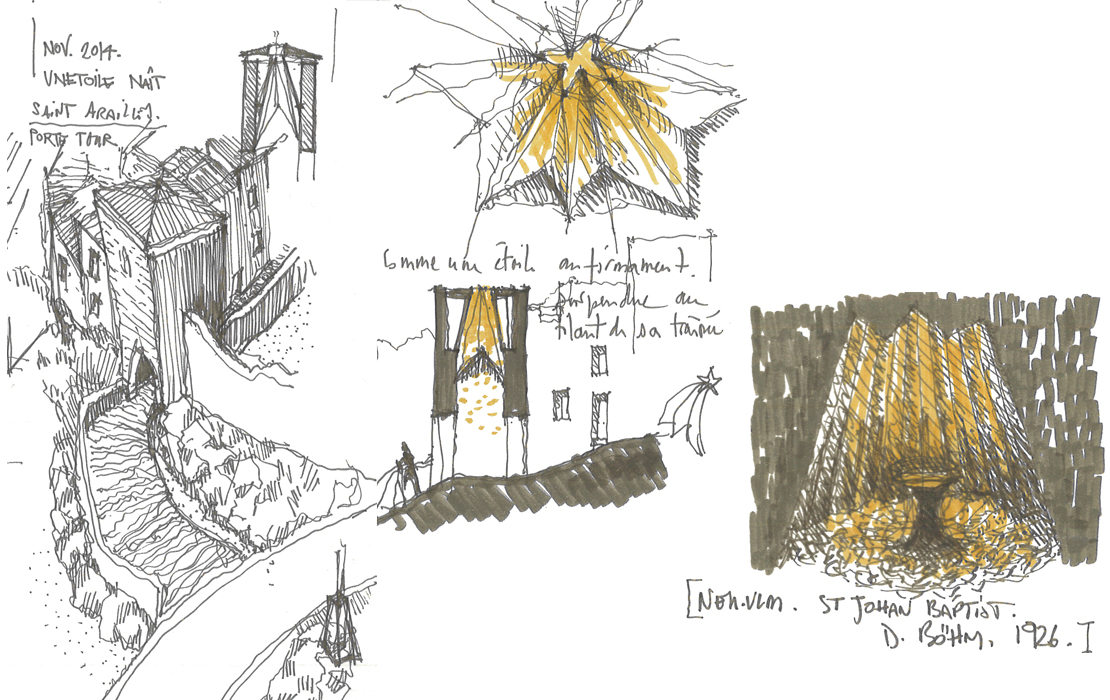 NOV. 2014.
UNETOILE NAÎT
SAINT ARAILLES.
PORTE TOUR
Comme une étoile au firmament.
suspendue au
filant de sa traîne
[NEU.ULM. ST JOHAN BAPTIST.
D. BÖHM, 1926.]